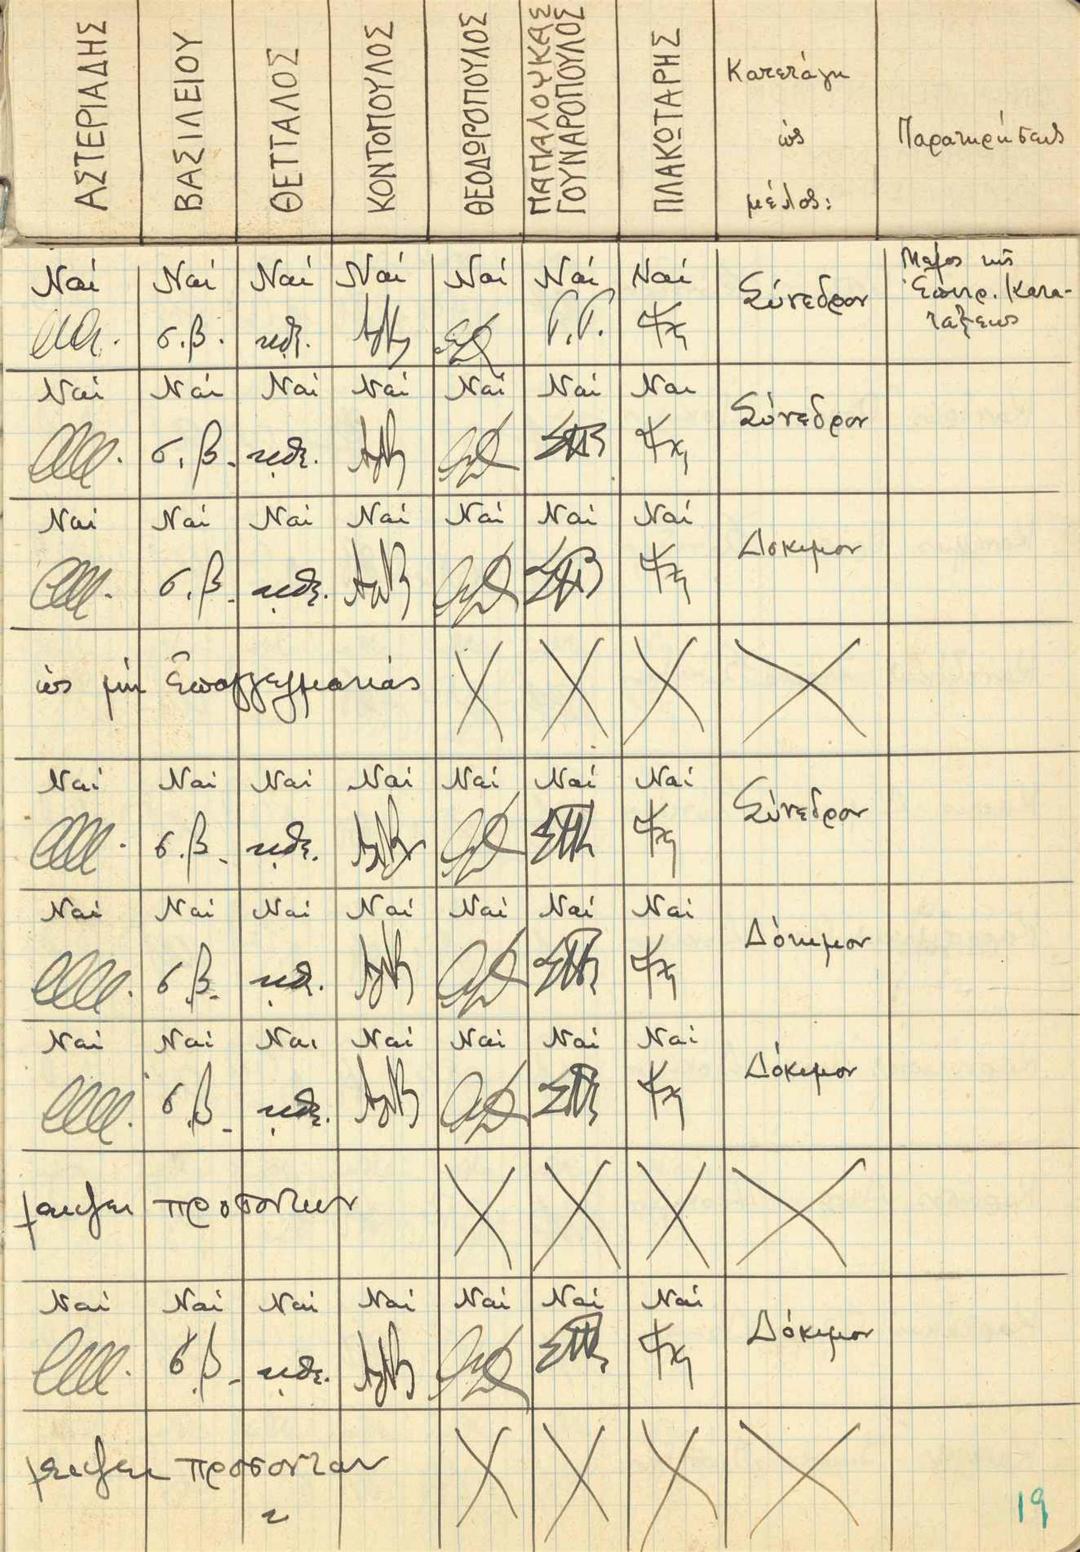 ΑΣΤΕΡΙΑΔΗΣ ΒΑΣΙΛΕΙΟΥ ΘΕΤΤΑΛΟΣ ΚΟΝΤΟΠΟΥΛΟΣ ΘΕΟΔΩΡΟΠΟΥΛΟΣ ΠΑΠΑΛΟΥΚΑΣ ΓΟΥΝΑΡΟΠΟΥΛΟΣ ΠΛΑΚΩΤΑΡΗΣ Κατετάγη ὡς μέλος: Παρατηρήσεις
Ναί Ναί Ναί Ναί Ναί Ναί Ναί Σύνεδρον Μέλος τῆς Ἐπιτρ. Κατατάξεως
σ.β. Γ.Γ.
Ναί Ναί Ναί Ναί Ναί Ναί Ναι Σύνεδρον
σ.β.
Ναί Ναί Ναί Ναί Ναί Ναί Ναί Δόκιμον
σ.β.
ὡς μή Ἐπαγγελματίας
Ναί Ναί Ναί Ναί Ναί Ναί Ναί Σύνεδρον
σ.β.
Ναί Ναί Ναί Ναί Ναί Ναί Ναί Δόκιμον
σ.β.
Ναί Ναί Ναι Ναί Ναί Ναί Ναί Δόκιμον
σ.β.
προσόντων
Ναί Ναί Ναί Ναί Ναί Ναί Ναί Δόκιμον
σ.β.
προσόντων
19